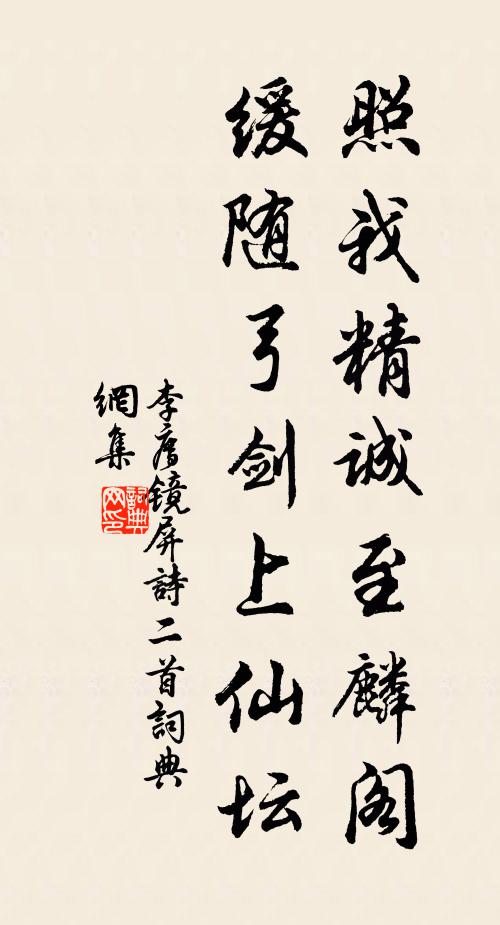 照我精诚至麟阁
缓随弓剑上仙坛
李廌镜屏詩二首詞典
網集
詞典
网印